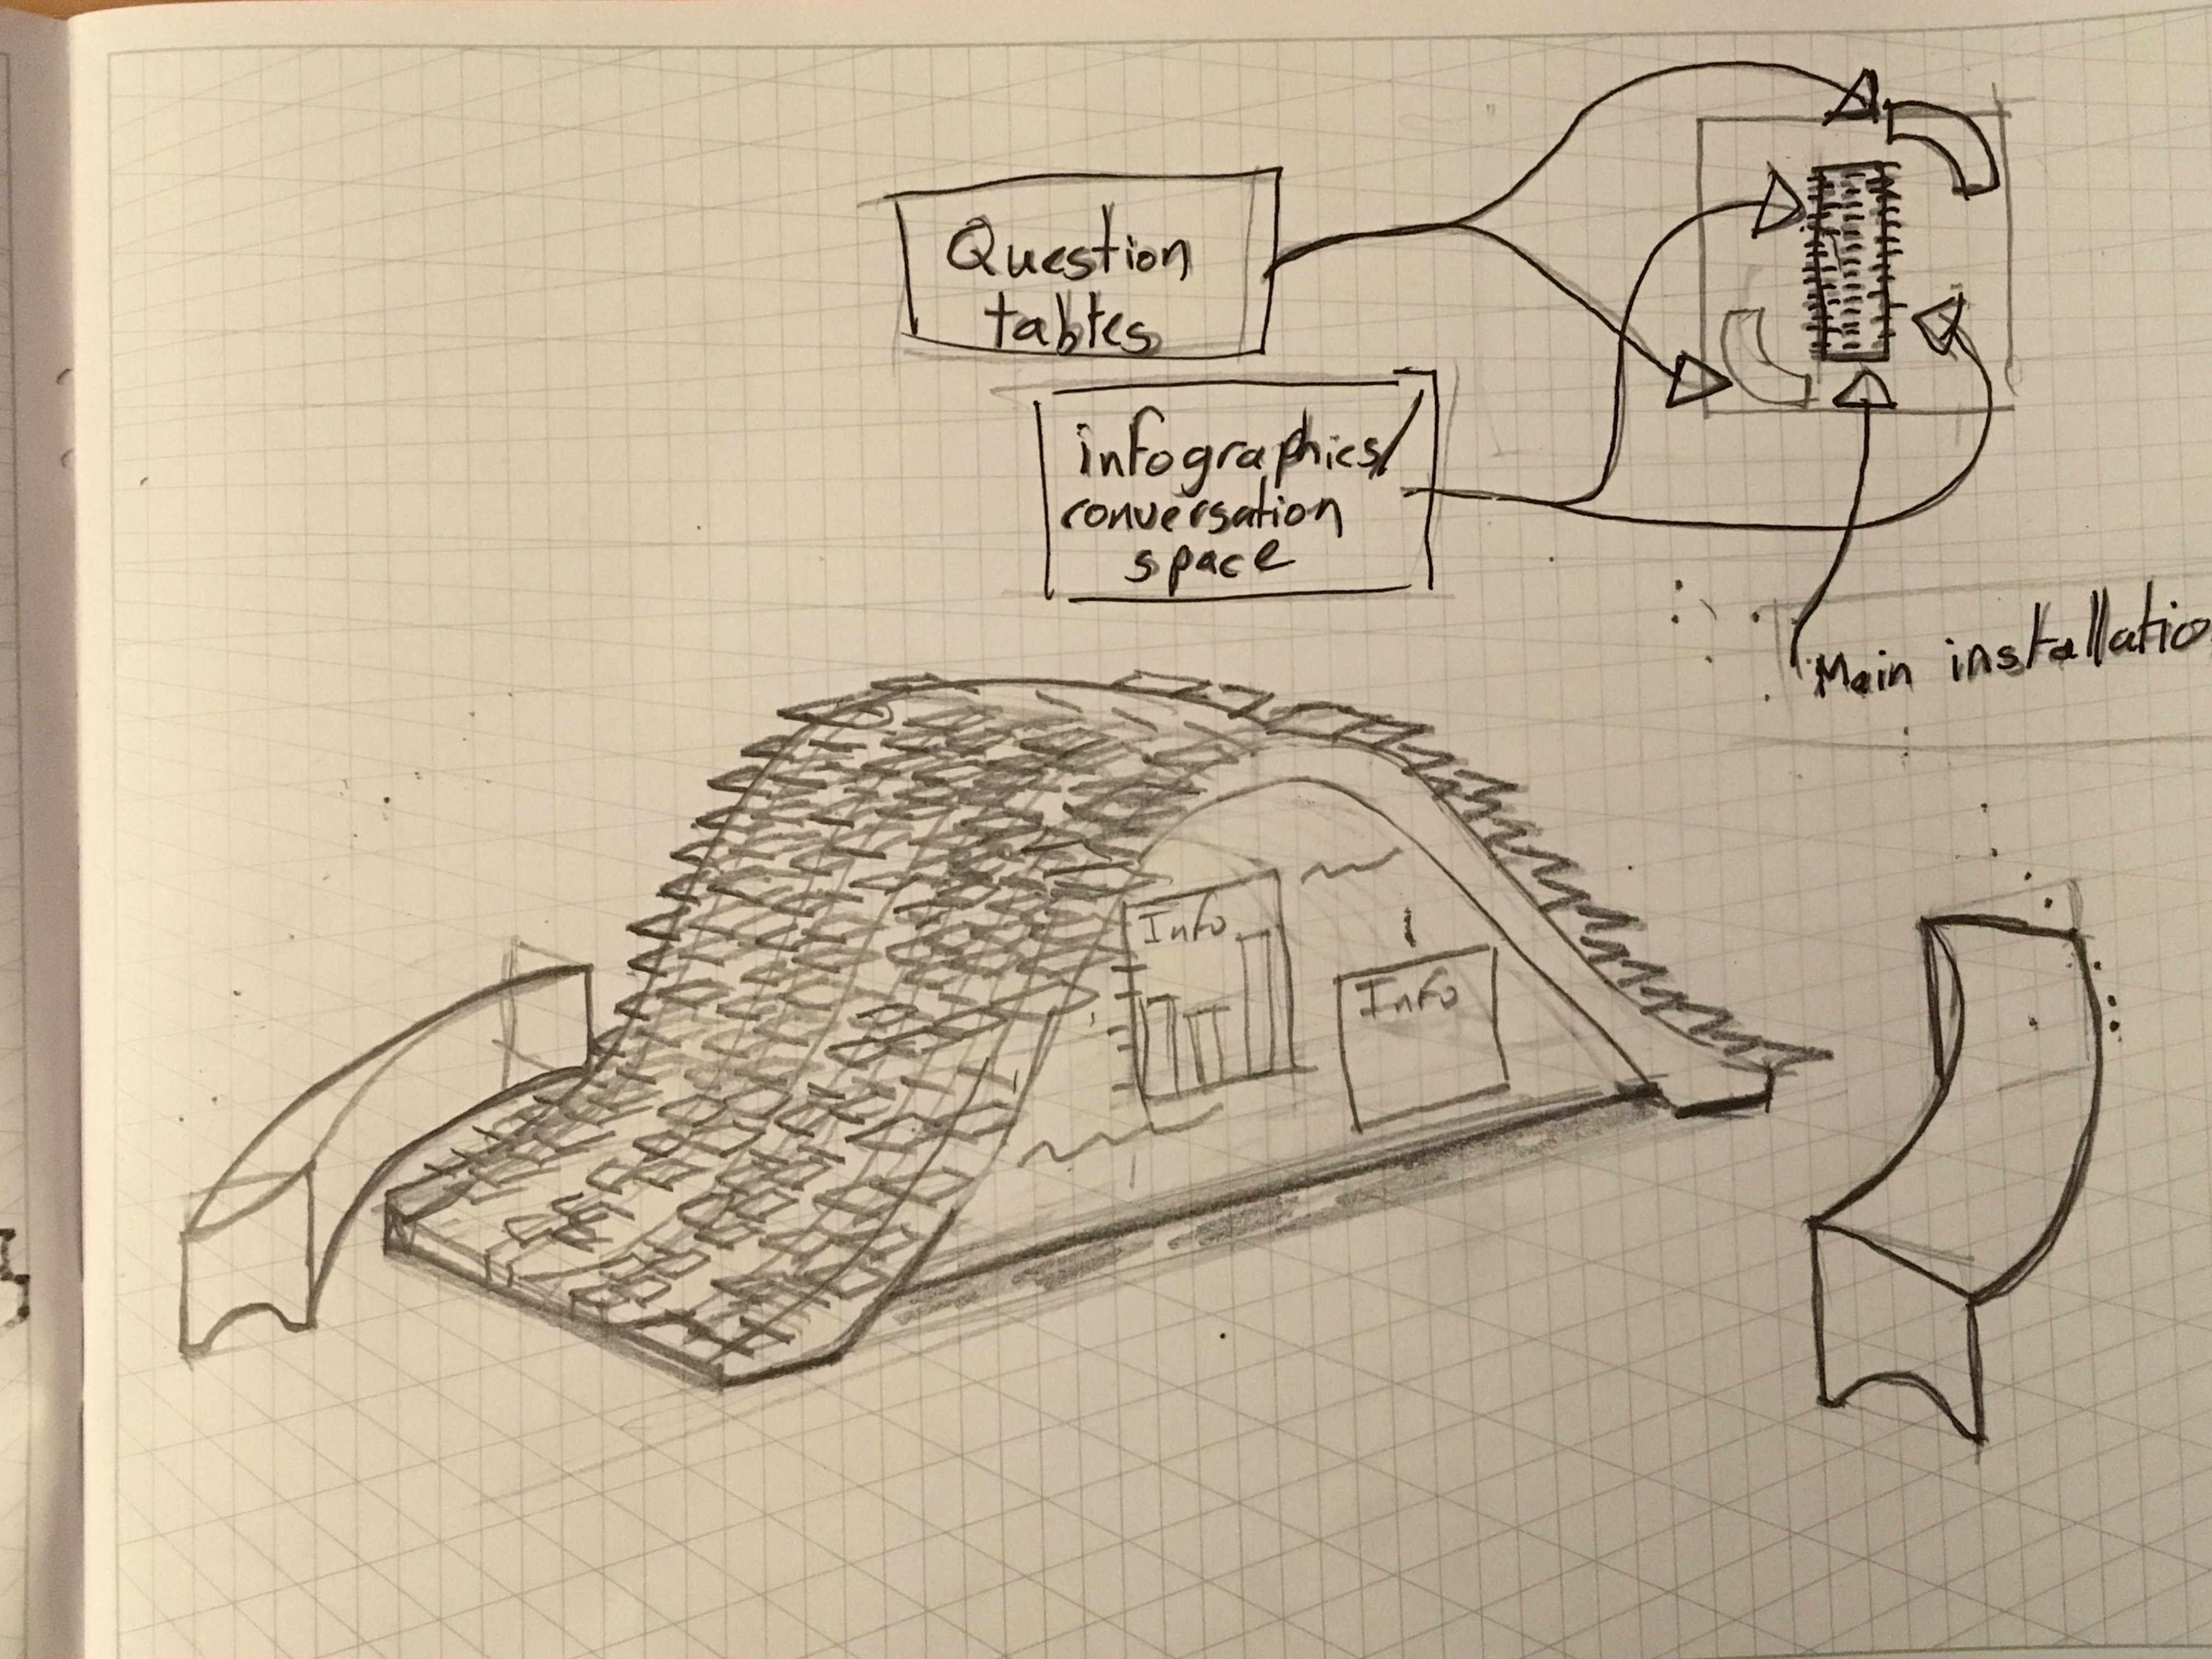 Question
tables
infographics/
conversation
space
Main installatio
Info
Info